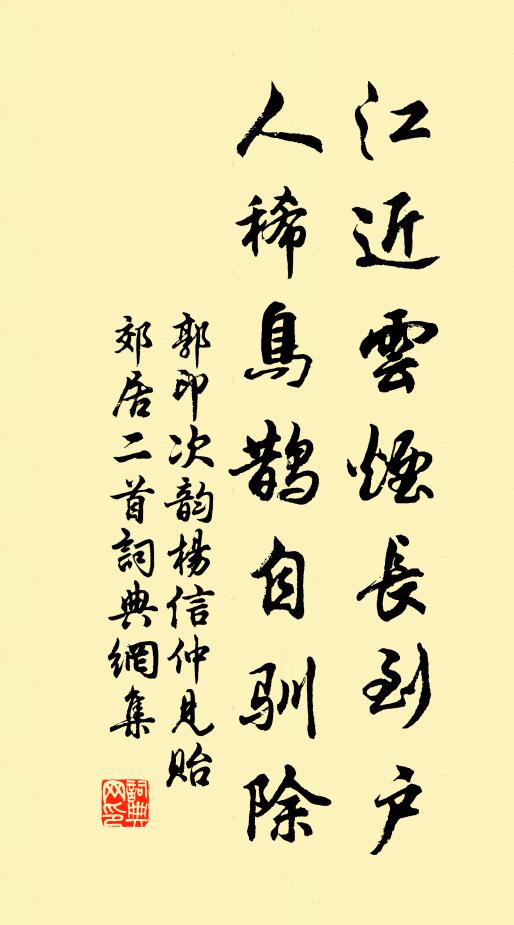 江近雲煙長到户
人稀鳥鵲自馴除
郭印次韵楊信仲見貽
郊居二首詞典網集
詞典
网印